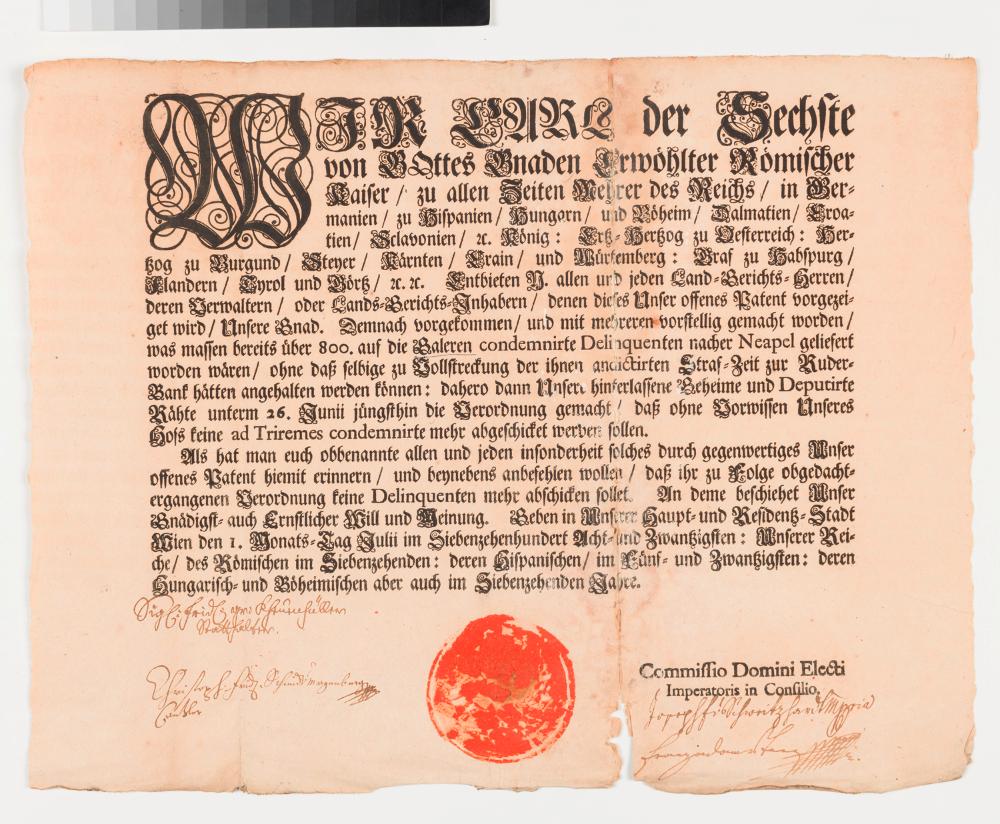 WIR CARL der Sechste
von GOttes Gnaden Erwöhlter Römischer
Kaiser / zu allen Zeiten Mehrer des Reichs / in Ger-
manien / zu Hispanien / Hungarn / und Böheim / Dalmatien / Croa-
tien / Sclavonien / ꝛc. König : Ertz-Hertzog zu Oesterreich : Her-
tzog zu Burgund / Steyer / Kärnten / Crain / und Würtemberg : Graf zu Habspurg /
Flandern / Tyrol und Görtz / ꝛc. ꝛc. Entbieten N. allen und jeden Land-Gerichts-Herren /
deren Verwaltern / oder Lands-Gerichts-Inhabern / denen dieses Unser offenes Patent vorgezei-
get wird / Unsere Gnad. Demnach vorgekommen / und mit mehreren vorstellig gemacht worden /
was massen bereits über 800. auf die Galeren condemnirte Delinquenten nacher Neapel geliefert
worden wären / ohne daß selbige zu Vollstreckung der ihnen andictirten Straf-Zeit zur Ruder-
Bank hätten angehalten werden können : dahero dann Unsere hinterlassene Geheime und Deputirte
Rähte unterm 26. Junii jüngsthin die Verordnung gemacht / daß ohne Vorwissen Unseres
Hofs keine ad Triremes condemnirte mehr abgeschicket werden sollen.
Als hat man euch obbenannte allen und jeden insonderheit solches durch gegenwertiges Unser
offenes Patent hiemit erinnern / und beynebens anbefehlen wollen / daß ihr zu Folge obgedacht-
ergangenen Verordnung keine Delinquenten mehr abschicken sollet. An deme beschiehet Unser
Gnädigst- auch Ernstlicher Will und Meinung. Geben in Unserer Haupt- und Residentz-Stadt
Wien den 1. Monats-Tag Julii im Siebenzehenhundert Acht- und Zwantzigsten : Unserer Rei-
che / des Römischen im Siebenzehenden : deren Hispanischen / im Fünf- und Zwantzigsten : deren
Hungarisch- und Böheimischen aber auch im Siebenzehenden Jahre.
Sigl. Fridl. grv. Khevenhüller
Statthalter.
Christoph Fridl. Schmidt
Cantzler
Commissio Domini Electi
Imperatoris in Consilio.
Joseph Schweitzhardt Mppria